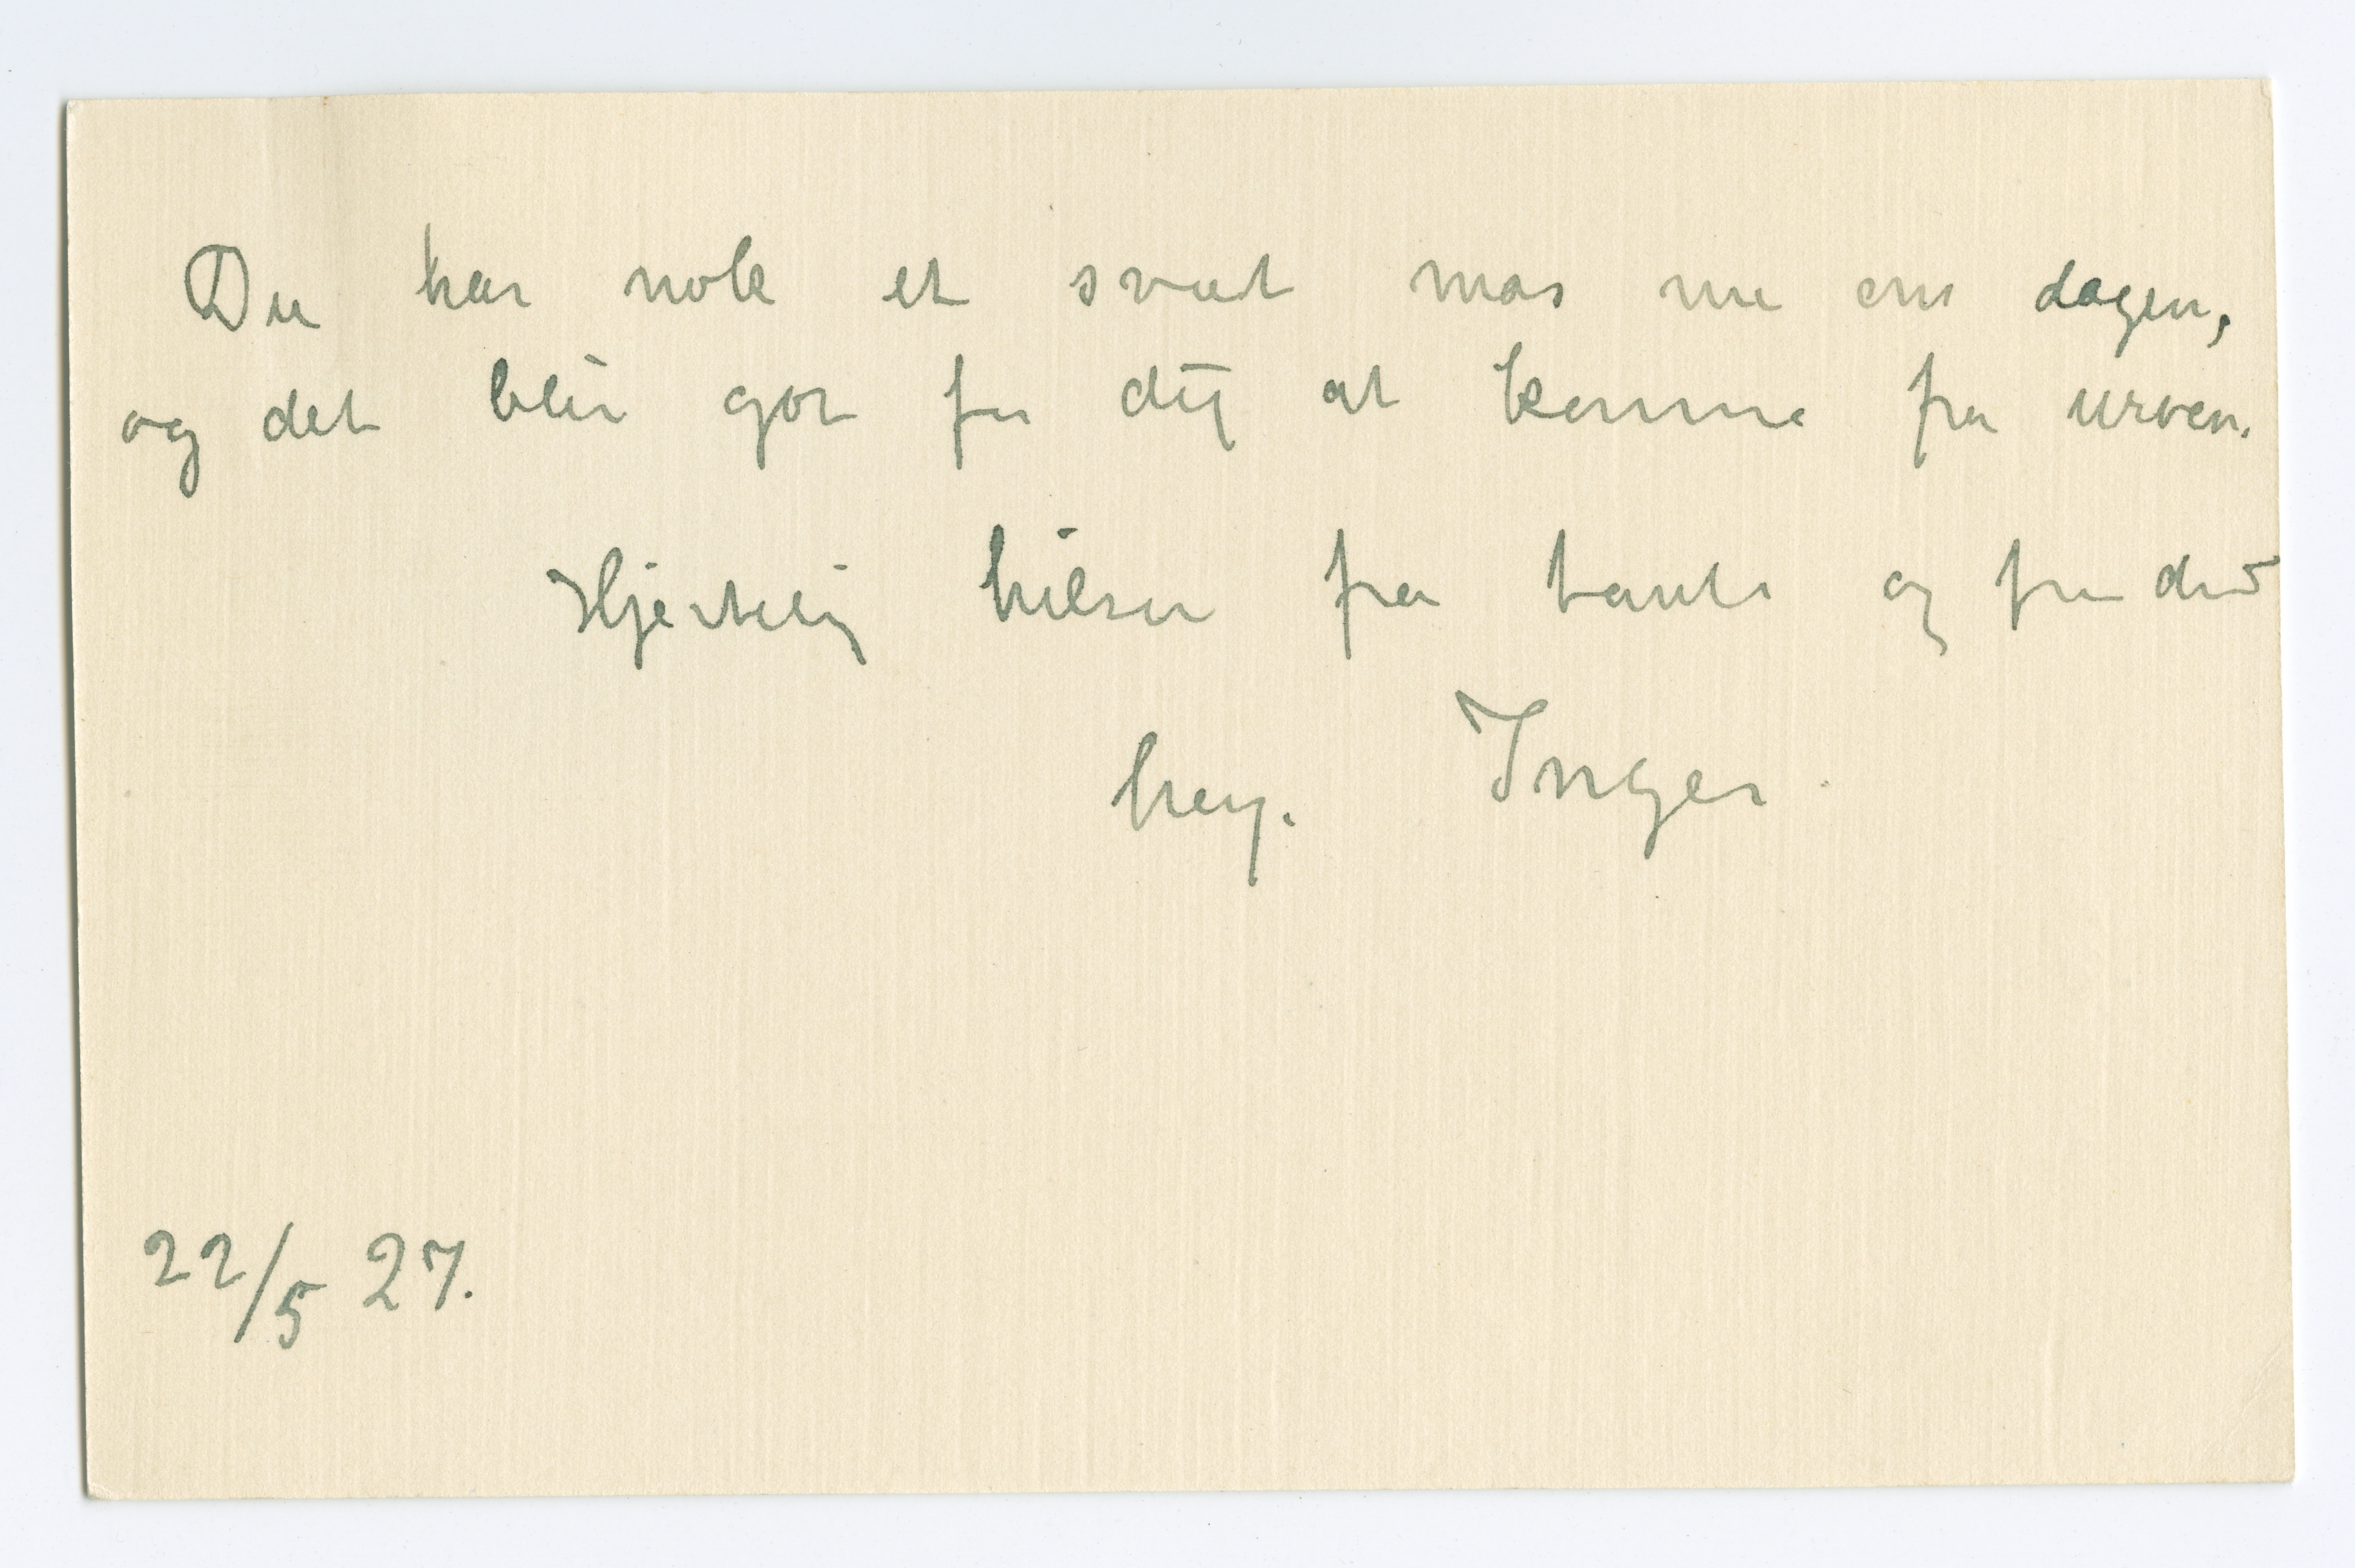 Du har nok et svært mas nu om dagen,
og det blir got for dig at komme fra
Hjertelig hilsen fra tante og fra din
heng. Inger.
22/5 27.